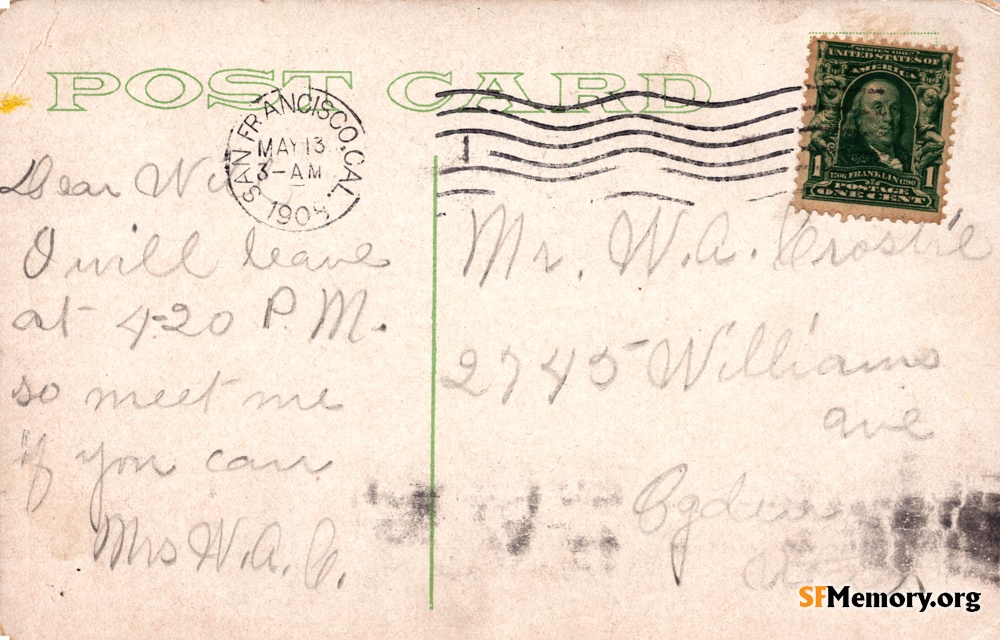 POST CARD
SAN FRANCISCO, CAL.
MAY 13
3-AM
1
SERIES 1902
UNITED STATES OF
AMERICA
1706 FRANKLIN 1790
1 1
POSTAGE
ONE CENT
Dear
I will leave
at 4-20 P.M.
so meet me
if you can
Mrs W.A.C.
Mr. W.A. Crosbie
2745 Williams
ave
SFMemory.org